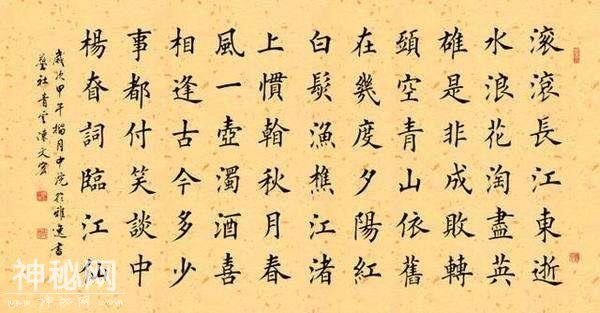 滚滾長江東逝
水浪花淘盡英
雄是非成敗轉
頭空青山依舊
在幾度夕陽紅
白髮漁樵江渚
上慣翰秋月春
風一壺濁酒喜
相逢古今多少
事都付笑談中
楊眘詞臨江仙
歲次甲午榴月中浣於雅逸書
藝社青雲陳文
神秘网